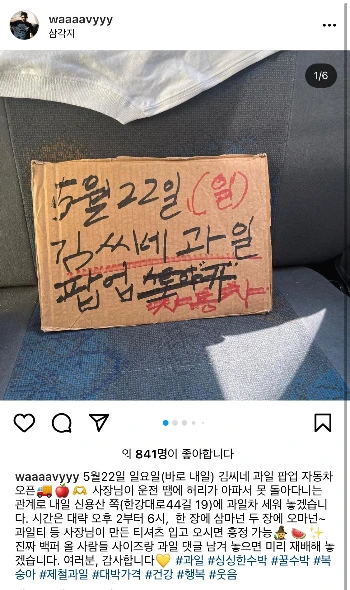 waaaavyyy
삼각지
1/6
5월 22일 (일)
김씨네 과일
팝업
자동차
익 841명이 좋아합니다
waaaavyyy 5월22일 일요일(바로 내일) 김씨네 과일 팝업 자동차
오픈🚚🍎🫶 사장님이 운전 땜에 허리가 아파서 못 돌아다니는
관계로 내일 신용산 쪽(한강대로44길 19)에 과일차 세워 놓겠습니
다. 시간은 대략 오후 2부터 6시, 한 장에 삼마넌 두 장에 오마넌~
과일티 등 사장님이 만든 티셔츠 입고 오시면 흥정 가능🧙🍉✨
진짜 백퍼 올 사람들 사이즈랑 과일 댓글 남겨 놓으면 미리 재배해 놓
겠습니다. 여러분, 감사합니다💛 #과일 #싱싱한수박 #꿀수박 #복
숭아 #제철과일 #대박가격 #건강 #행복 #웃음